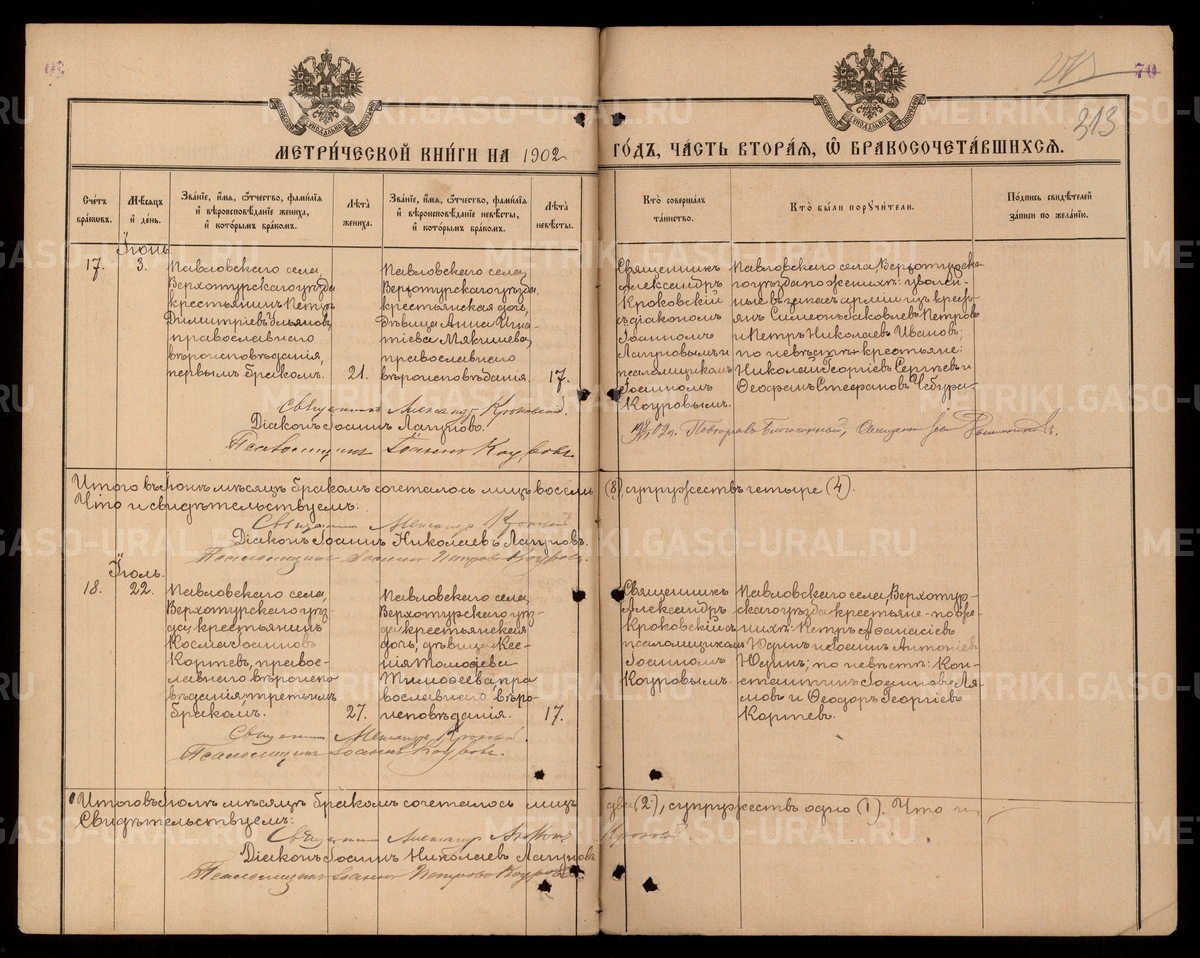 70
313
МЕТРИЧЕСКОЙ КНИГИ НА 1902
ГОДЪ, ЧАСТЬ ВТОРАЯ, Ѿ БРАКОСОЧЕТАВШИХСЯ.
Счетъ браковъ.
Мѣсяцъ и день.
Званіе, имя, отчество, фамилія
и вѣроисповѣданіе жениха,
и которымъ бракомъ.
Лѣта
жениха.
Званіе, имя, отчество, фамилія
и вѣроисповѣданіе невѣсты,
и которымъ бракомъ.
Лѣта
невѣсты.
Кто совершалъ
таинство.
Кто были поручители.
Подпись свидѣтелей
записи по желанію.
17.
Іюнь
3.
Павловскаго села,
Верхотурскаго уѣзда
крестьянинъ Петръ
Димитріевъ Ульяновъ,
православнаго
вѣроисповѣданія,
первымъ бракомъ.
21.
Павловскаго села,
Верхотурскаго уѣзда,
крестьянская дочь,
дѣвица Анна Игна-
тіева Мякишева,
православнаго
вѣроисповѣданія.
17.
Священникъ
Александръ
Кроковскій
съ діакономъ
Іоанномъ
Лапуновымъ и
псаломщикомъ
Іоанномъ
Коуровымъ.
Павловскаго села, Верхотурска-
го уѣзда по женихѣ: уволен-
ные въ запасъ арміи изъ кресть-
янъ Симеонъ Іаковлевъ Петровъ
и Петръ Николаевъ Ивановъ;
по невѣстѣ крестьяне:
Николай Георгіевъ Сергѣевъ и
Ѳеофанъ Стефановъ Чебура-
Священникъ Александръ Кроковскій.
Діаконъ Іоаннъ Лапуновъ.
Псаломщикъ Іоаннъ Коуровъ
Благочинный, Священникъ
Итого въ іюнѣ мѣсяцѣ бракомъ сочеталось лицъ восемь (8) супружествъ четыре (4).
Что и свидѣтельствуемъ:
Священникъ Александръ Кроковскій
Діаконъ Іоаннъ Николаевъ Лапуновъ.
Псаломщикъ Іоаннъ Петровъ Коуровъ.
18.
Іюль.
22.
Павловскаго села,
Верхотурскаго уѣз-
да, крестьянинъ
Косма Іоанновъ
Коргевъ, правос-
лавнаго вѣроиспо-
вѣданія, третьимъ
бракомъ.
27.
Павловскаго села,
Верхотурскаго уѣз-
да крестьянская
дочь, дѣвица Ксе-
нія Тимоѳеева
Тимоѳеева, пра-
вославнаго вѣро-
исповѣданія.
17.
Священникъ
Александръ
Кроковскій съ
псаломщикомъ
Іоанномъ
Коуровымъ.
Павловскаго села, Верхотур-
скаго уѣзда крестьяне: по же-
нихѣ: Петръ Аѳанасіевъ
Юдинъ и Іоаннъ Антоніевъ
Юдинъ; по невѣстѣ: Кон-
стантинъ Іоанновъ Ля-
мовъ и Ѳеодоръ Георгіевъ
Коргевъ.
Священникъ Александръ Кроковскій.
Псаломщикъ Іоаннъ Коуровъ.
Итого въ іюлѣ мѣсяцѣ бракомъ сочеталось лицъ два (2), супружествъ одно (1). Что и
свидѣтельствуемъ:
Священникъ Александръ
Діаконъ Іоаннъ Николаевъ Лапуновъ
Псаломщикъ Іоаннъ Петровъ Коуровъ
METRIKI.GASO-URAL.RU